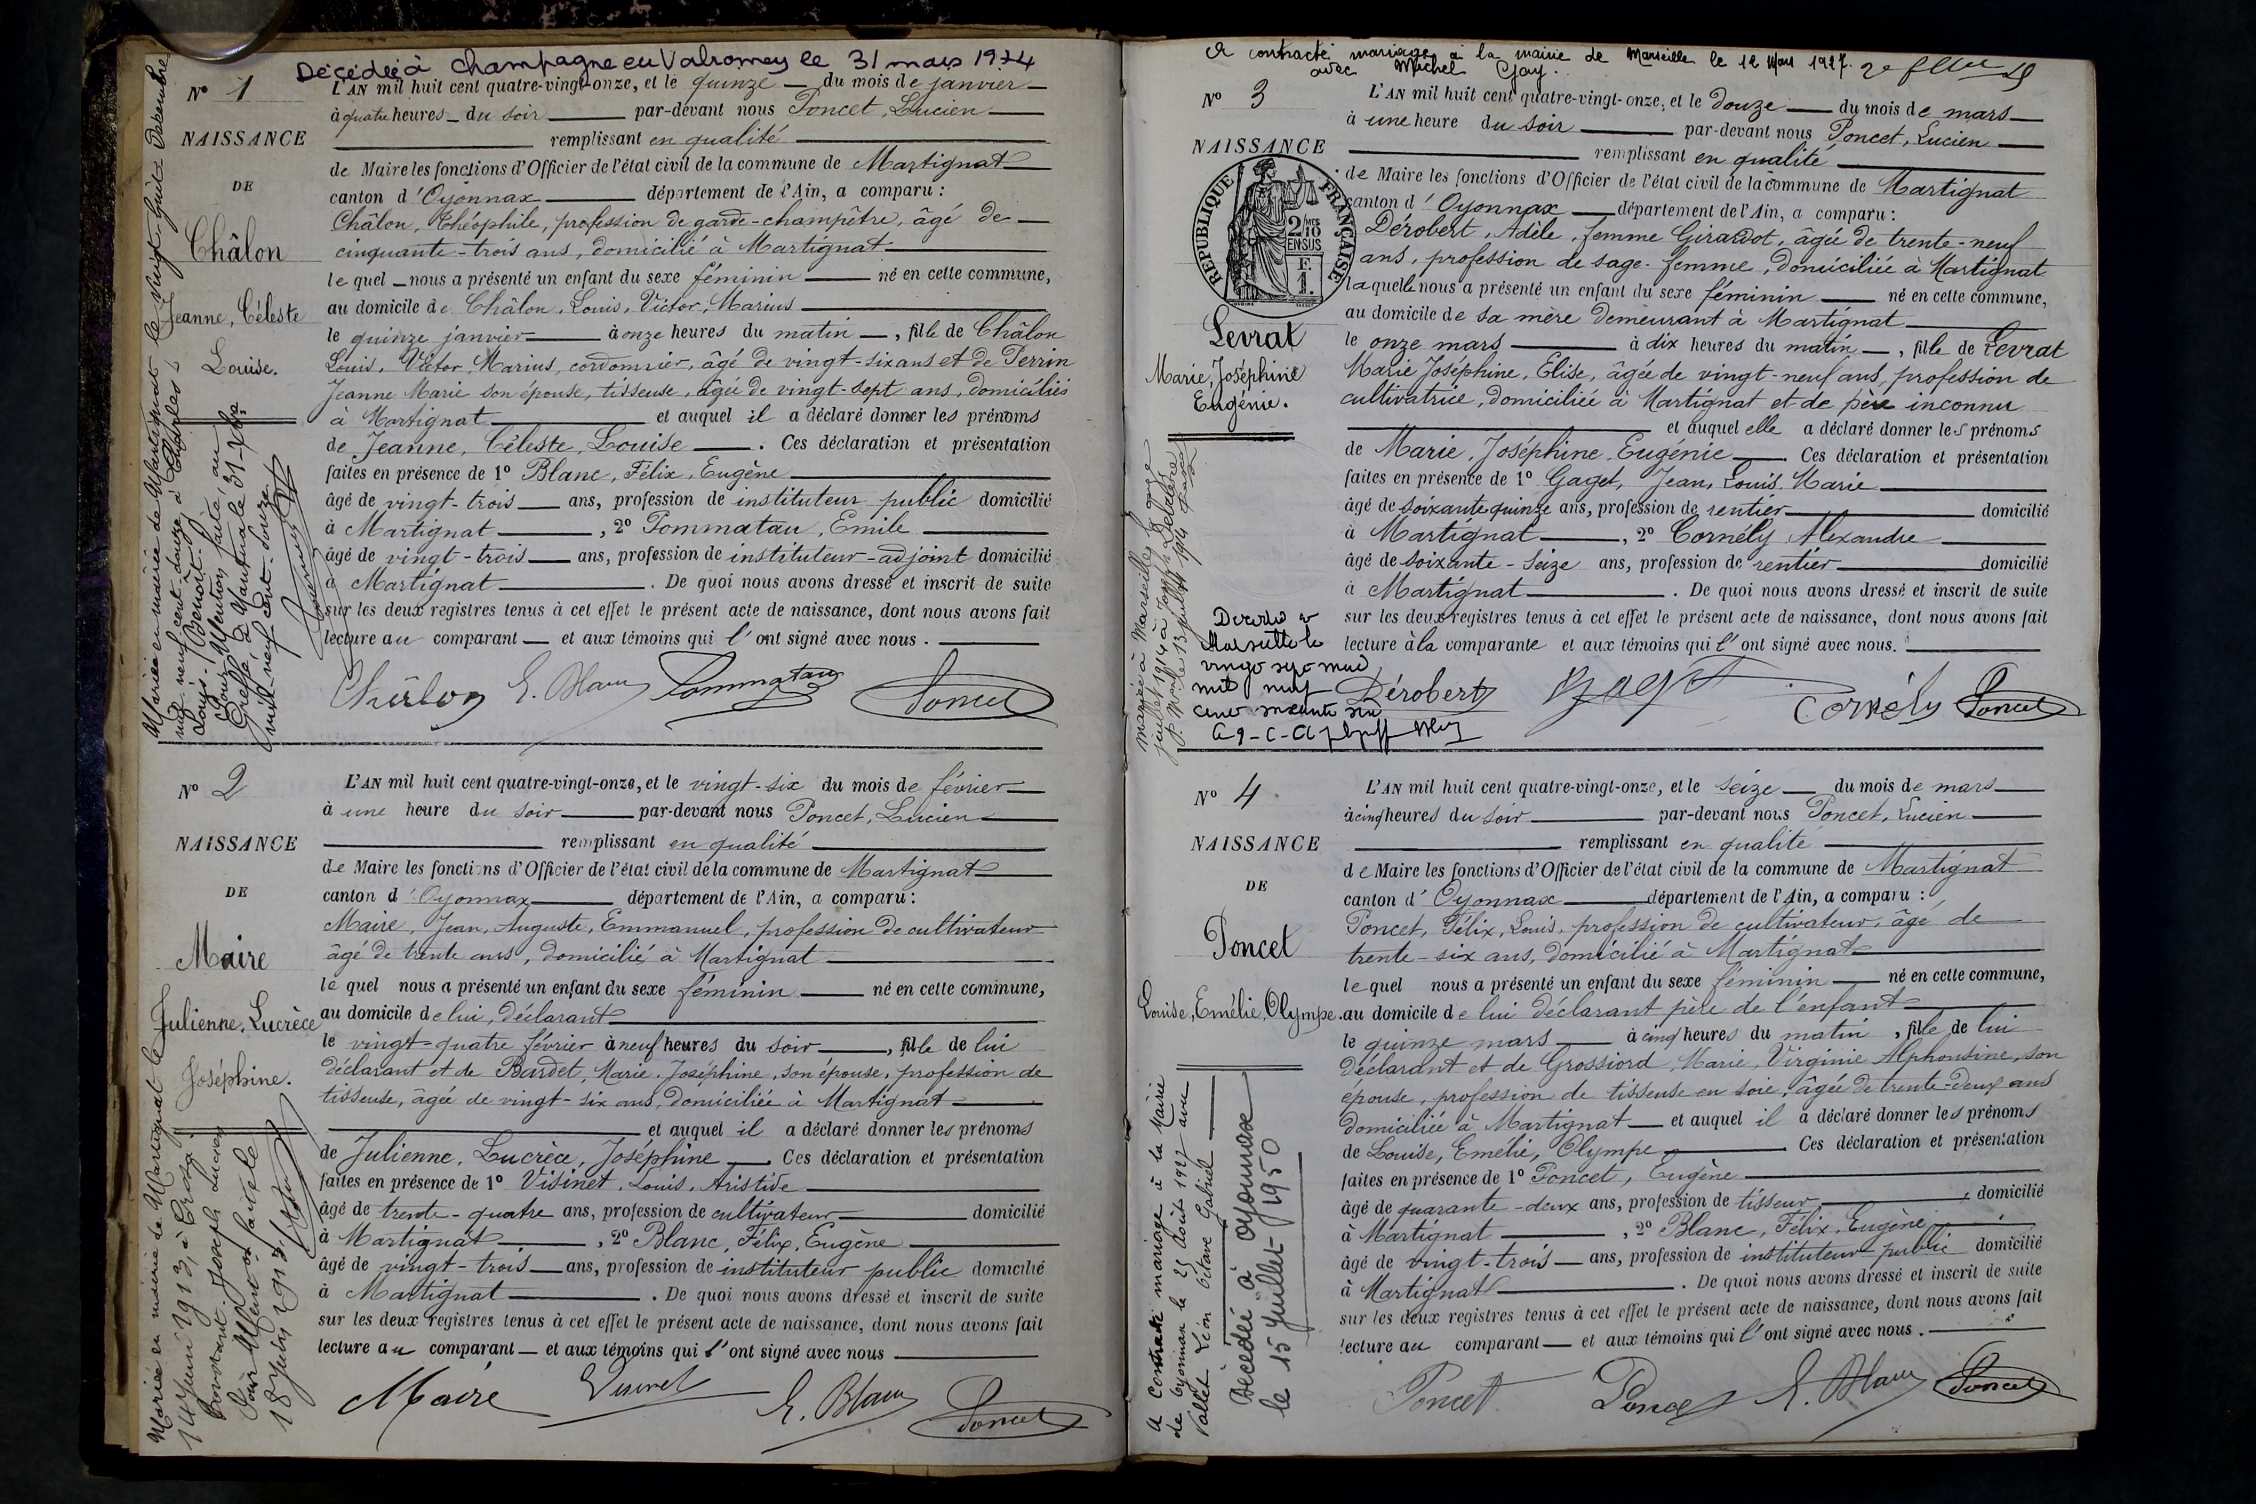 Décédée à Champagne en Valromey le 31 mars 1974
N° 1
NAISSANCE
DE
Châlon
Jeanne, Céleste
Louise.
L'AN mil huit cent quatre-vingt-onze, et le quinze du mois de janvier
à quatre heures du soir par-devant nous Poncet, Lucien
remplissant en qualité
de Maire les fonctions d'Officier de l'état civil de la commune de Martignat
canton d'Oyonnax département de l'Ain, a comparu :
Châlon, Théophile, profession de garde-champêtre, âgé de
cinquante-trois ans, domicilié à Martignat
le quel nous a présenté un enfant du sexe féminin né en cette commune,
au domicile de Châlon, Louis, Victor, Marius
le quinze janvier à onze heures du matin, fille de Châlon
Louis, Victor, Marius, cordonnier, âgé de vingt-six ans et de Perrin
Jeanne Marie son épouse, tisseuse, âgée de vingt-sept ans, domiciliés
à Martignat et auquel il a déclaré donner les prénoms
de Jeanne, Céleste, Louise. Ces déclaration et présentation
faites en présence de 1° Blanc, Félix, Eugène
âgé de vingt-trois ans, profession de instituteur public domicilié
à Martignat, 2° Pommatau, Emile
âgé de vingt-trois ans, profession de instituteur-adjoint domicilié
à Martignat. De quoi nous avons dressé et inscrit de suite
sur les deux registres tenus à cet effet le présent acte de naissance, dont nous avons fait
lecture au comparant et aux témoins qui l'ont signé avec nous.
Châlon E. Blanc Pommatau Poncet
Mariée en mairie de Martignat le vingt-huit Décembre
mil neuf cent douze à Charles
Louis, Benoît.
Pour Mention faite au
Greffe à Nantua le 31 Xbre
mil neuf cent douze
N° 2
NAISSANCE
DE
Maire
Julienne, Lucrèce
Joséphine.
L'AN mil huit cent quatre-vingt-onze, et le vingt-six du mois de février
à une heure du soir par-devant nous Poncet, Lucien
remplissant en qualité
de Maire les fonctions d'Officier de l'état civil de la commune de Martignat
canton d'Oyonnax département de l'Ain, a comparu :
Maire, Jean, Auguste, Emmanuel, profession de cultivateur
âgé de trente ans, domicilié à Martignat
le quel nous a présenté un enfant du sexe féminin né en cette commune,
au domicile de lui, déclarant
le vingt-quatre février à neuf heures du soir, fille de lui
déclarant et de Bardet, Marie, Joséphine, son épouse, profession de
tisseuse, âgée de vingt-six ans, domiciliée à Martignat
et auquel il a déclaré donner les prénoms
de Julienne, Lucrèce, Joséphine. Ces déclaration et présentation
faites en présence de 1° Visinet, Louis, Aristide
âgé de trente-quatre ans, profession de cultivateur domicilié
à Martignat, 2° Blanc, Félix, Eugène
âgé de vingt-trois ans, profession de instituteur public domicilié
à Martignat. De quoi nous avons dressé et inscrit de suite
sur les deux registres tenus à cet effet le présent acte de naissance, dont nous avons fait
lecture au comparant et aux témoins qui l'ont signé avec nous
Maire Visinet E. Blanc Poncet
Mariée en mairie de Martignat le
14 Juin 1913, à
Joseph Lucien
Pour Mention faite le
18 Juin 1913
A contracté mariage à la mairie de Marseille le 12 Mars 1927.
avec Michel Gay.
N° 3
NAISSANCE
RÉPUBLIQUE FRANÇAISE
2/10 EN SUS
F. 1.
Levrat
Marie, Joséphine
Eugénie.
L'AN mil huit cent quatre-vingt-onze, et le douze du mois de mars
à une heure du soir par-devant nous Poncet, Lucien
remplissant en qualité
de Maire les fonctions d'Officier de l'état civil de la commune de Martignat
canton d'Oyonnax département de l'Ain, a comparu :
Dérobert, Adèle, femme Girardot, âgée de trente-neuf
ans, profession de sage-femme, domiciliée à Martignat
laquelle nous a présenté un enfant du sexe féminin né en cette commune,
au domicile de sa mère demeurant à Martignat
le onze mars à dix heures du matin, fille de Levrat
Marie Joséphine, Elise, âgée de vingt-neuf ans, profession de
cultivatrice, domiciliée à Martignat et de père inconnu
et auquel elle a déclaré donner les prénoms
de Marie, Joséphine, Eugénie. Ces déclaration et présentation
faites en présence de 1° Gaget, Jean, Louis, Marie
âgé de soixante quinze ans, profession de rentier domicilié
à Martignat, 2° Cornély Alexandre
âgé de soixante-seize ans, profession de rentier domicilié
à Martignat. De quoi nous avons dressé et inscrit de suite
sur les deux registres tenus à cet effet le présent acte de naissance, dont nous avons fait
lecture à la comparante et aux témoins qui l'ont signé avec nous.
Dérobert Gaget Cornély Poncet
Mariée à Marseille le onze
juillet 1914 à Joseph
le 13 juillet 1914
Décédée à
Marseille le
vingt sept mai
mil neuf
cent soixante six
N° 4
NAISSANCE
DE
Poncet
Louise, Emélie, Olympe.
L'AN mil huit cent quatre-vingt-onze, et le seize du mois de mars
à cinq heures du soir par-devant nous Poncet, Lucien
remplissant en qualité
de Maire les fonctions d'Officier de l'état civil de la commune de Martignat
canton d'Oyonnax département de l'Ain, a comparu :
Poncet, Félix, Louis, profession de cultivateur, âgé de
trente-six ans, domicilié à Martignat
le quel nous a présenté un enfant du sexe féminin né en cette commune,
au domicile de lui déclarant père de l'enfant
le quinze mars à cinq heures du matin, fille de lui
déclarant et de Grossiord, Marie, Virginie Alphonsine, son
épouse, profession de tisseuse en soie, âgée de trente-deux ans
domiciliée à Martignat et auquel il a déclaré donner les prénoms
de Louise, Emélie, Olympe Ces déclaration et présentation
faites en présence de 1° Poncet, Eugène
âgé de quarante-deux ans, profession de tisseur, domicilié
à Martignat, 2° Blanc, Félix, Eugène
âgé de vingt-trois ans, profession de instituteur public domicilié
à Martignat. De quoi nous avons dressé et inscrit de suite
sur les deux registres tenus à cet effet le présent acte de naissance, dont nous avons fait
lecture au comparant et aux témoins qui l'ont signé avec nous.
Poncet Poncet E. Blanc Poncet
A contracté mariage à la Mairie
de Oyonnax le 29 Août 1927 avec
Vallet Léon Octave Gabriel
Décédée à Oyonnax
le 15 Juillet 1950